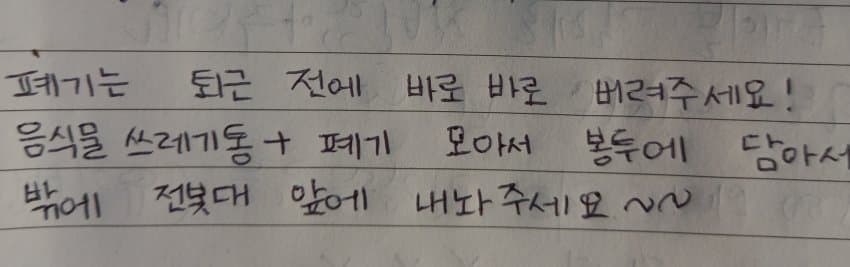 폐기는 퇴근 전에 바로 바로 버려주세요!
음식물 쓰레기통 + 폐기 모아서 봉투에 담아서
밖에 전봇대 앞에 내놔주세요~~